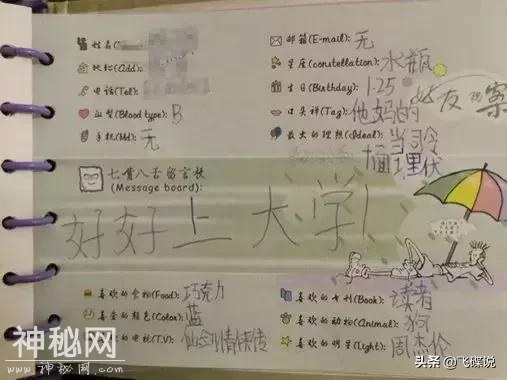 姓名(Name): 邮箱(E-mail): 无
地址(Add): 星座(constellation): 水瓶
电话(Tel): 生日(Birthday): 1.25
血型(Blood type): B 口头禅(Tag): 他妈的
手机(Md): 无 最大的理想(Ideal): 当司令
埋伏
好友档案
七嘴八舌留言板
(Message board):
好好上大学!
喜欢的食物(Food): 巧克力 喜欢的书刊(Book): 读者
喜爱的颜色(Color): 蓝 喜欢的动物(Animal): 狗
的电视(T.V): 仙剑情侠传 喜欢的明星(Light): 周杰伦
神秘网
WWW.神秘网.COM
头条 @飞碟说